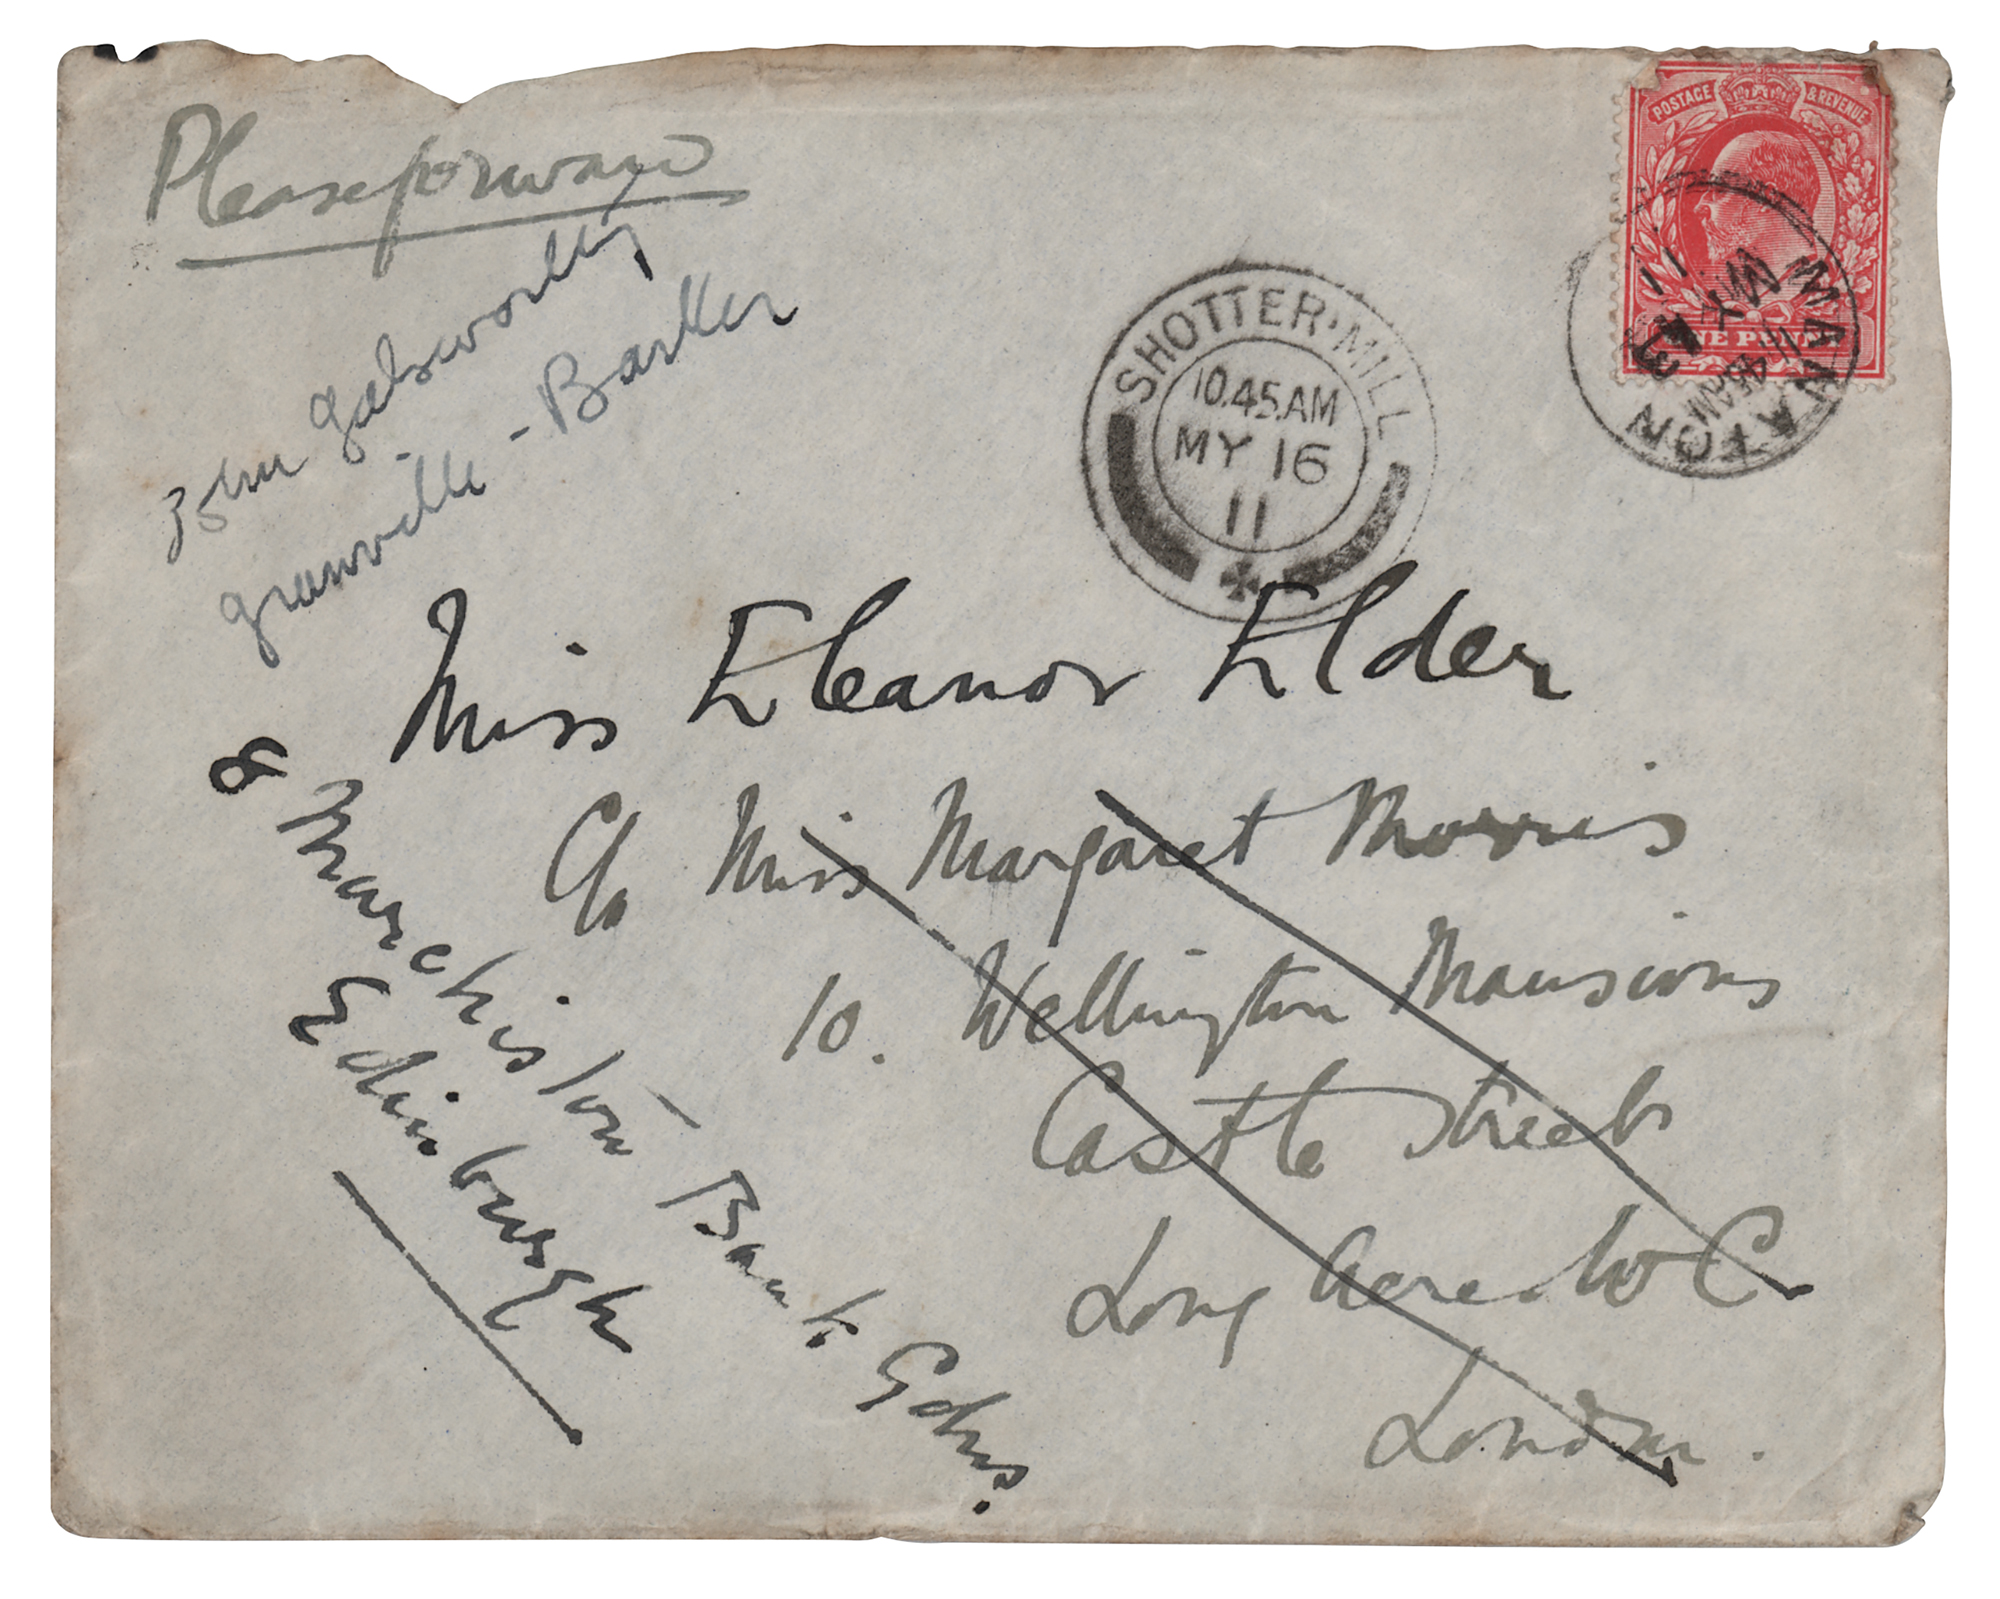 Please forward
John Galsworthy
Granville-Barker
POSTAGE & REVENUE
ONE PENNY
MANATON
11.45AM
MY
11
SHOTTER·MILL
10.45.AM
MY 16
11
Miss Eleanor Elder
C/o Miss Margaret Morris
10. Wellington Mansions
Castle Street
Long Acre W C
London.
8 Marchiston Bank Gdns.
Edinburgh